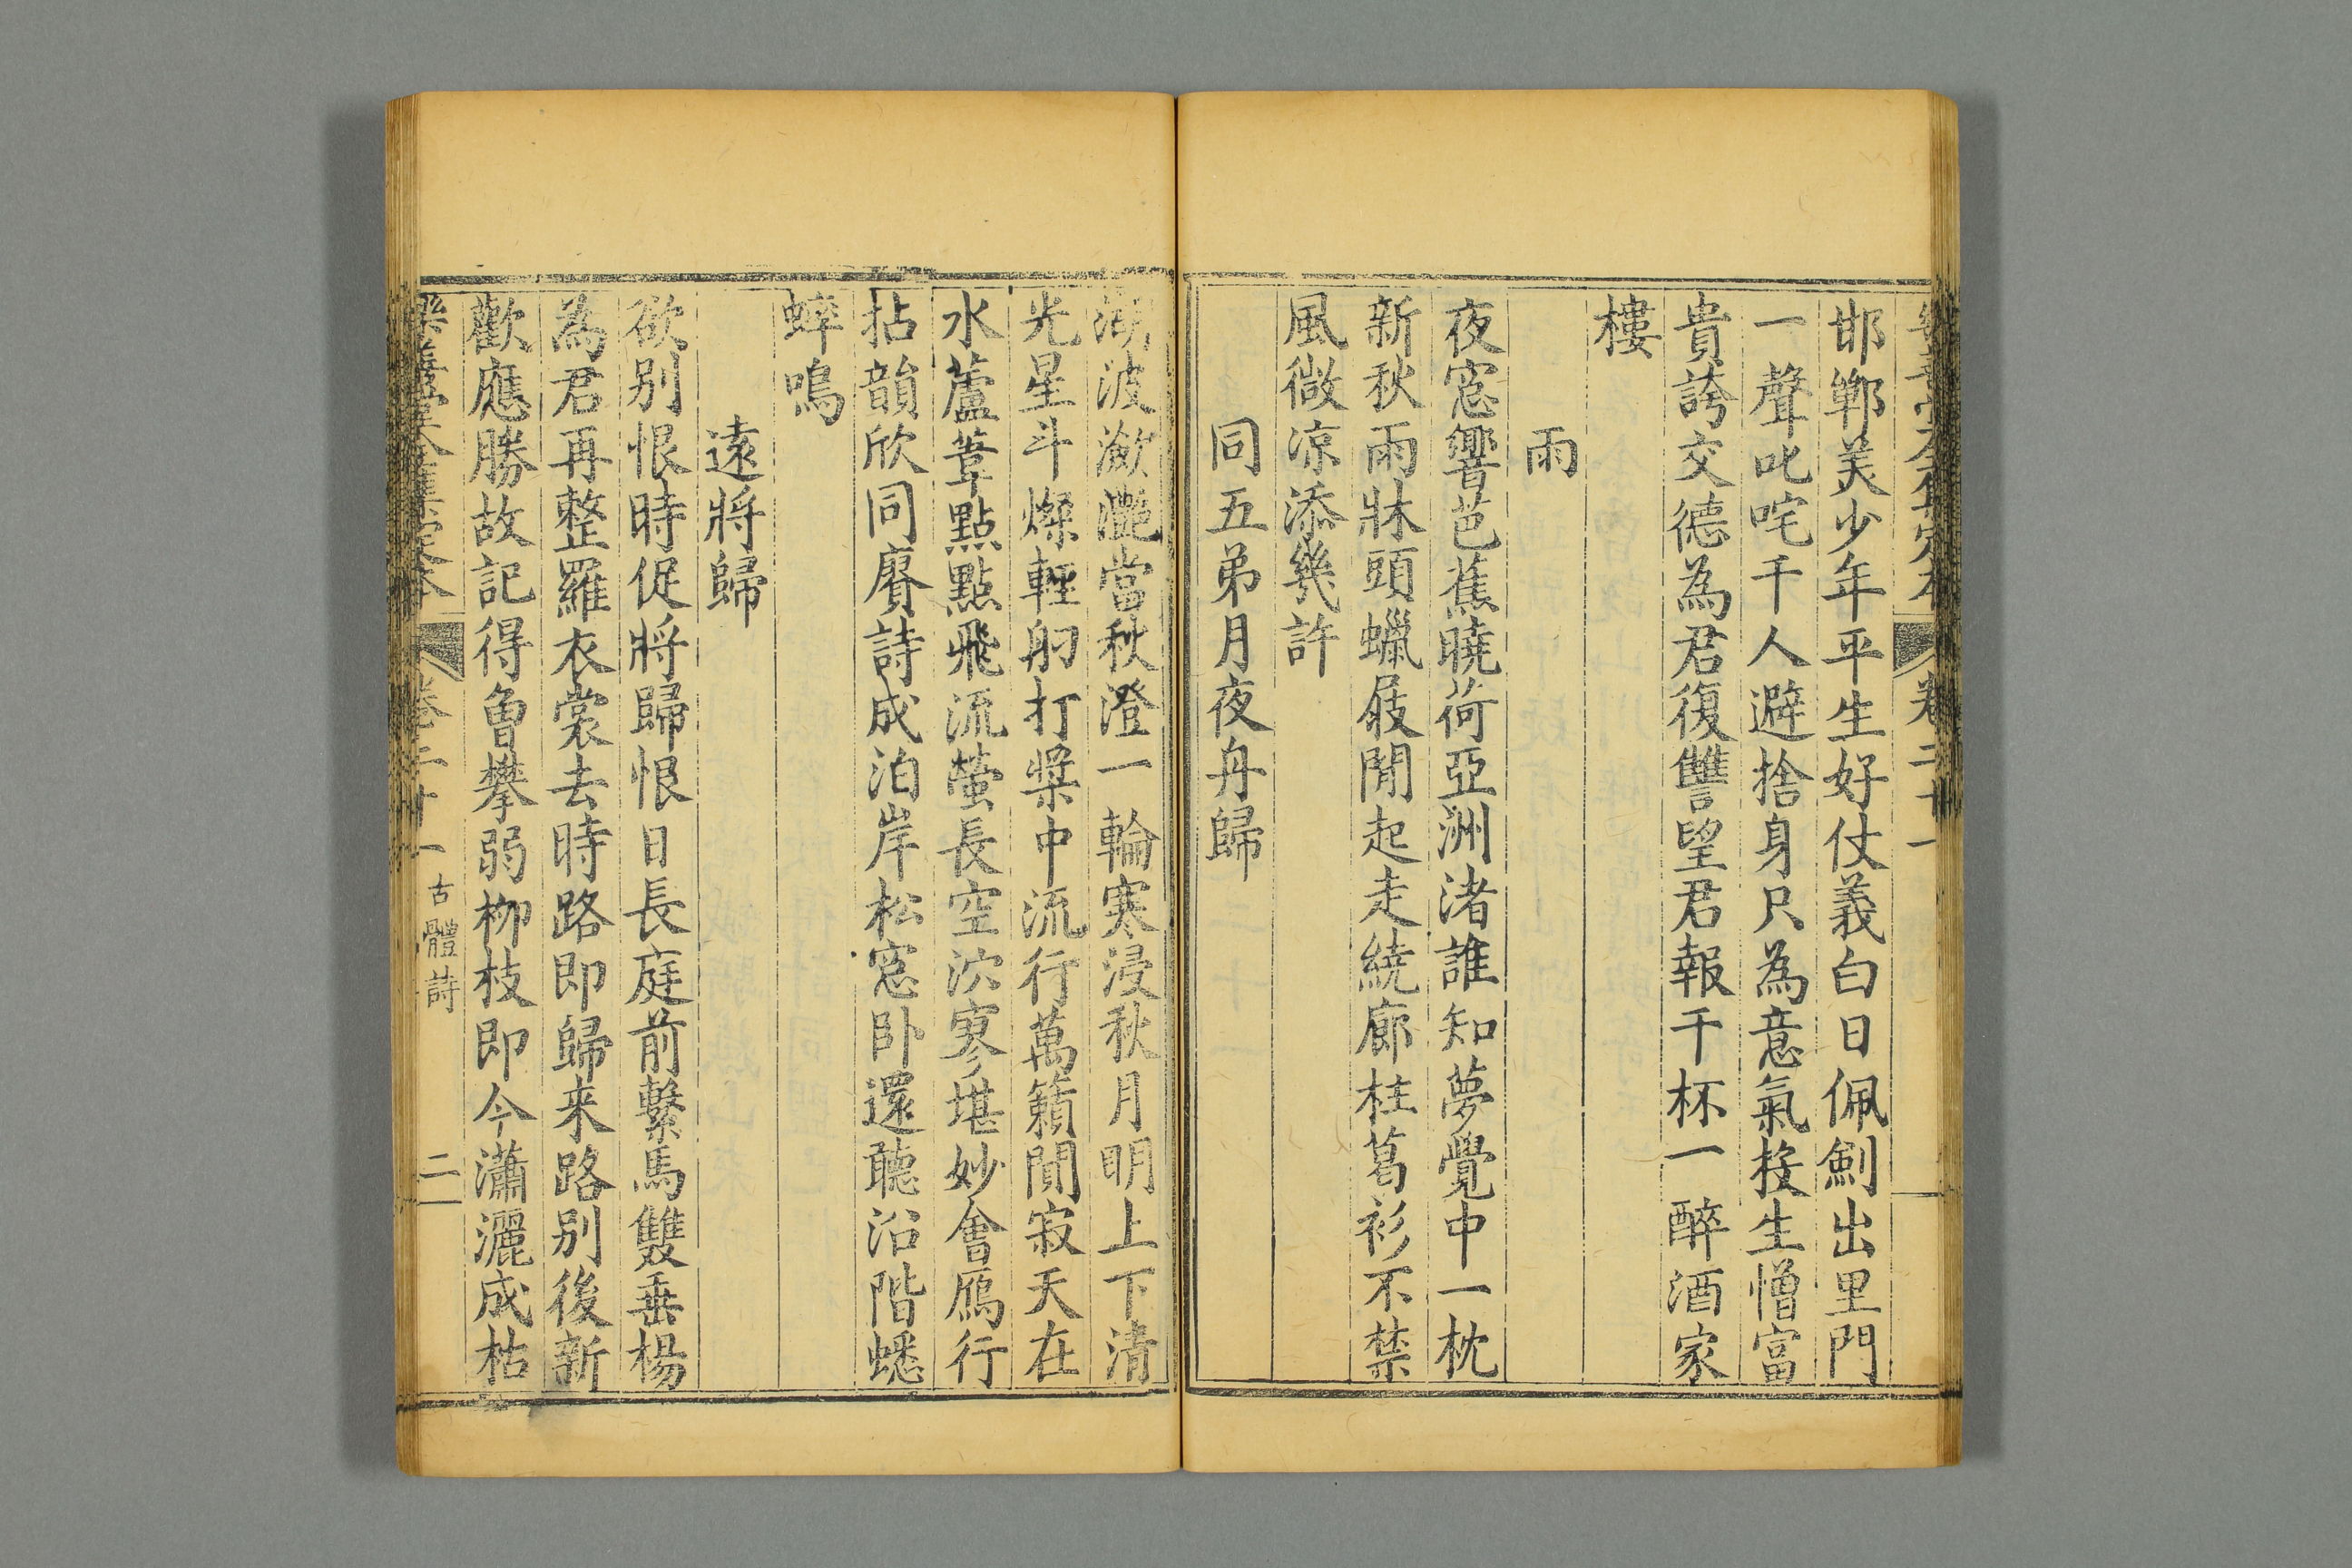 樂善堂全集定本 卷二十一
邯鄲美少年平生好仗義白日佩劍出里門
一聲叱咤千人避捨身只為意氣投生憎富
貴誇交德為君復讐望君報千杯一醉酒家
樓
雨
夜窓響芭蕉曉荷亞洲渚誰知夢覺中一枕
新秋雨牀頭蠟屐閒起走繞廊柱葛衫不禁
風微凉添幾許
同五弟月夜舟歸
湖波瀲灩當秋澄一輪寒浸秋月明上下清
光星斗燦輕舠打槳中流行萬籟閒寂天在
水蘆葦點點飛流螢長空泬寥堪妙會鴈行
拈韻欣同賡詩成泊岸松窓卧還聽沿階蟋
蟀鳴
遠將歸
欲别恨時促將歸恨日長庭前繫馬雙垂楊
為君再整羅衣裳去時路即歸来路别後新
歡應勝故記得曾攀弱栁枝即今瀟灑成枯
樂善堂全集定本 卷二十一 古體詩 二